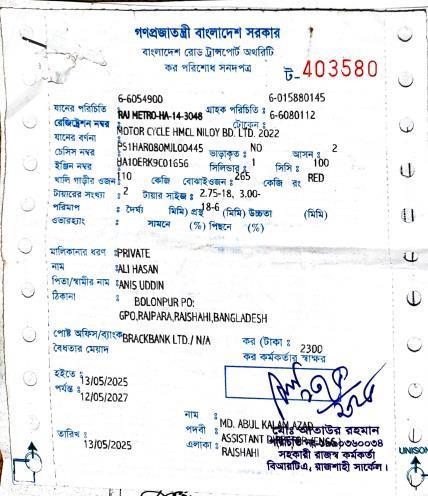 গণপ্রজাতন্ত্রী বাংলাদেশ সরকার
বাংলাদেশ রোড ট্রান্সপোর্ট অথরিটি
কর পরিশোধ সনদপত্র
ট-403580
6-6054900 6-015880145
যানের পরিচিতি গ্রাহক পরিচিতি : 6-6080112
রেজিষ্ট্রেশন নম্বর : RAJ METRO-HA-14-3048 টোকেন :
যানের বর্ণনা : MOTOR CYCLE HMCL NILOY BD. LTD. 2022
চেসিস নম্বর : PS1HAR080MJL00445 ভাড়াকৃত : NO আসন : 2
ইঞ্জিন নম্বর : HA10ERK9C01656 সিলিন্ডার : 1 সিসি : 100
খালি গাড়ীর ওজন : 110 কেজি বোঝাইওজন : 265 কেজি রং RED
টায়ারের সংখ্যা : 2 টায়ার সাইজ : 2.75-18, 3.00-
18-6
পরিমাপ : দৈর্ঘ্য (মিমি) প্রস্থ (মিমি) উচ্চতা (মিমি)
ওভারহ্যাং : সামনে (%) পিছনে (%)
মালিকানার ধরণ : PRIVATE
নাম : ALI HASAN
পিতা/স্বামীর নাম : ANIS UDDIN
ঠিকানা : BOLONPUR PO:
GPO,RAJPARA,RAJSHAHI,BANGLADESH
পোষ্ট অফিস/ব্যাংক : BRACKBANK LTD./ N/A কর (টাকা : 2300
বৈধতার মেয়াদ কর কর্মকর্তার স্বাক্ষর
হইতে : 13/05/2025
পর্যন্ত : 12/05/2027
নাম : MD. ABUL KALAM AZAD
পদবী : ASSISTANT DIRECTOR (ENGG.)
তারিখ : 13/05/2025 এলাকা : RAJSHAHI
মোঃ আতাউর রহমান
সহকারী রাজস্ব কর্মকর্তা
বিআরটিএ, রাজশাহী সার্কেল।
UNISON